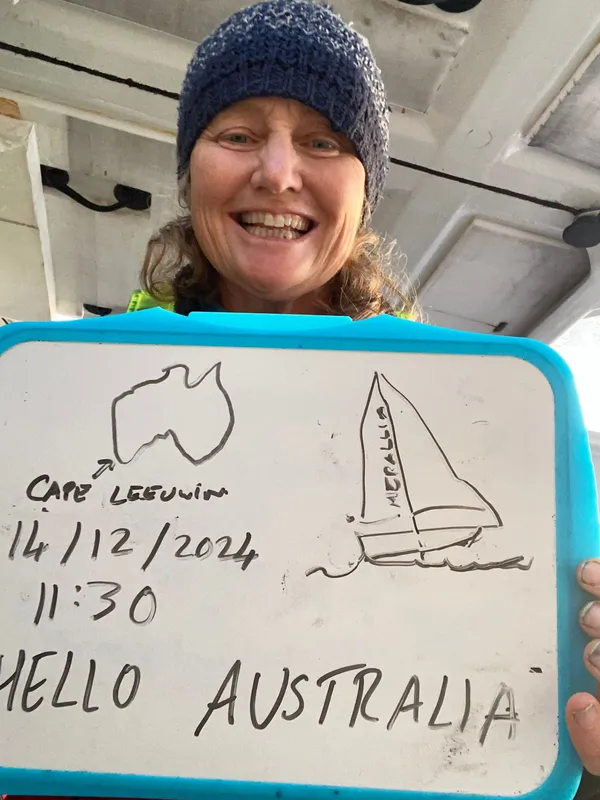 MEDALLIA
CAPE LEEUWIN
14/12/2024
11:30
HELLO AUSTRALIA